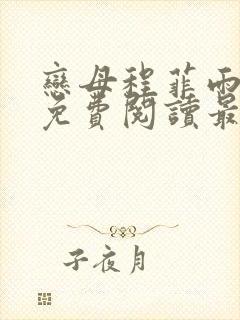 戀母程菲雨
免費閱讀最
子夜月